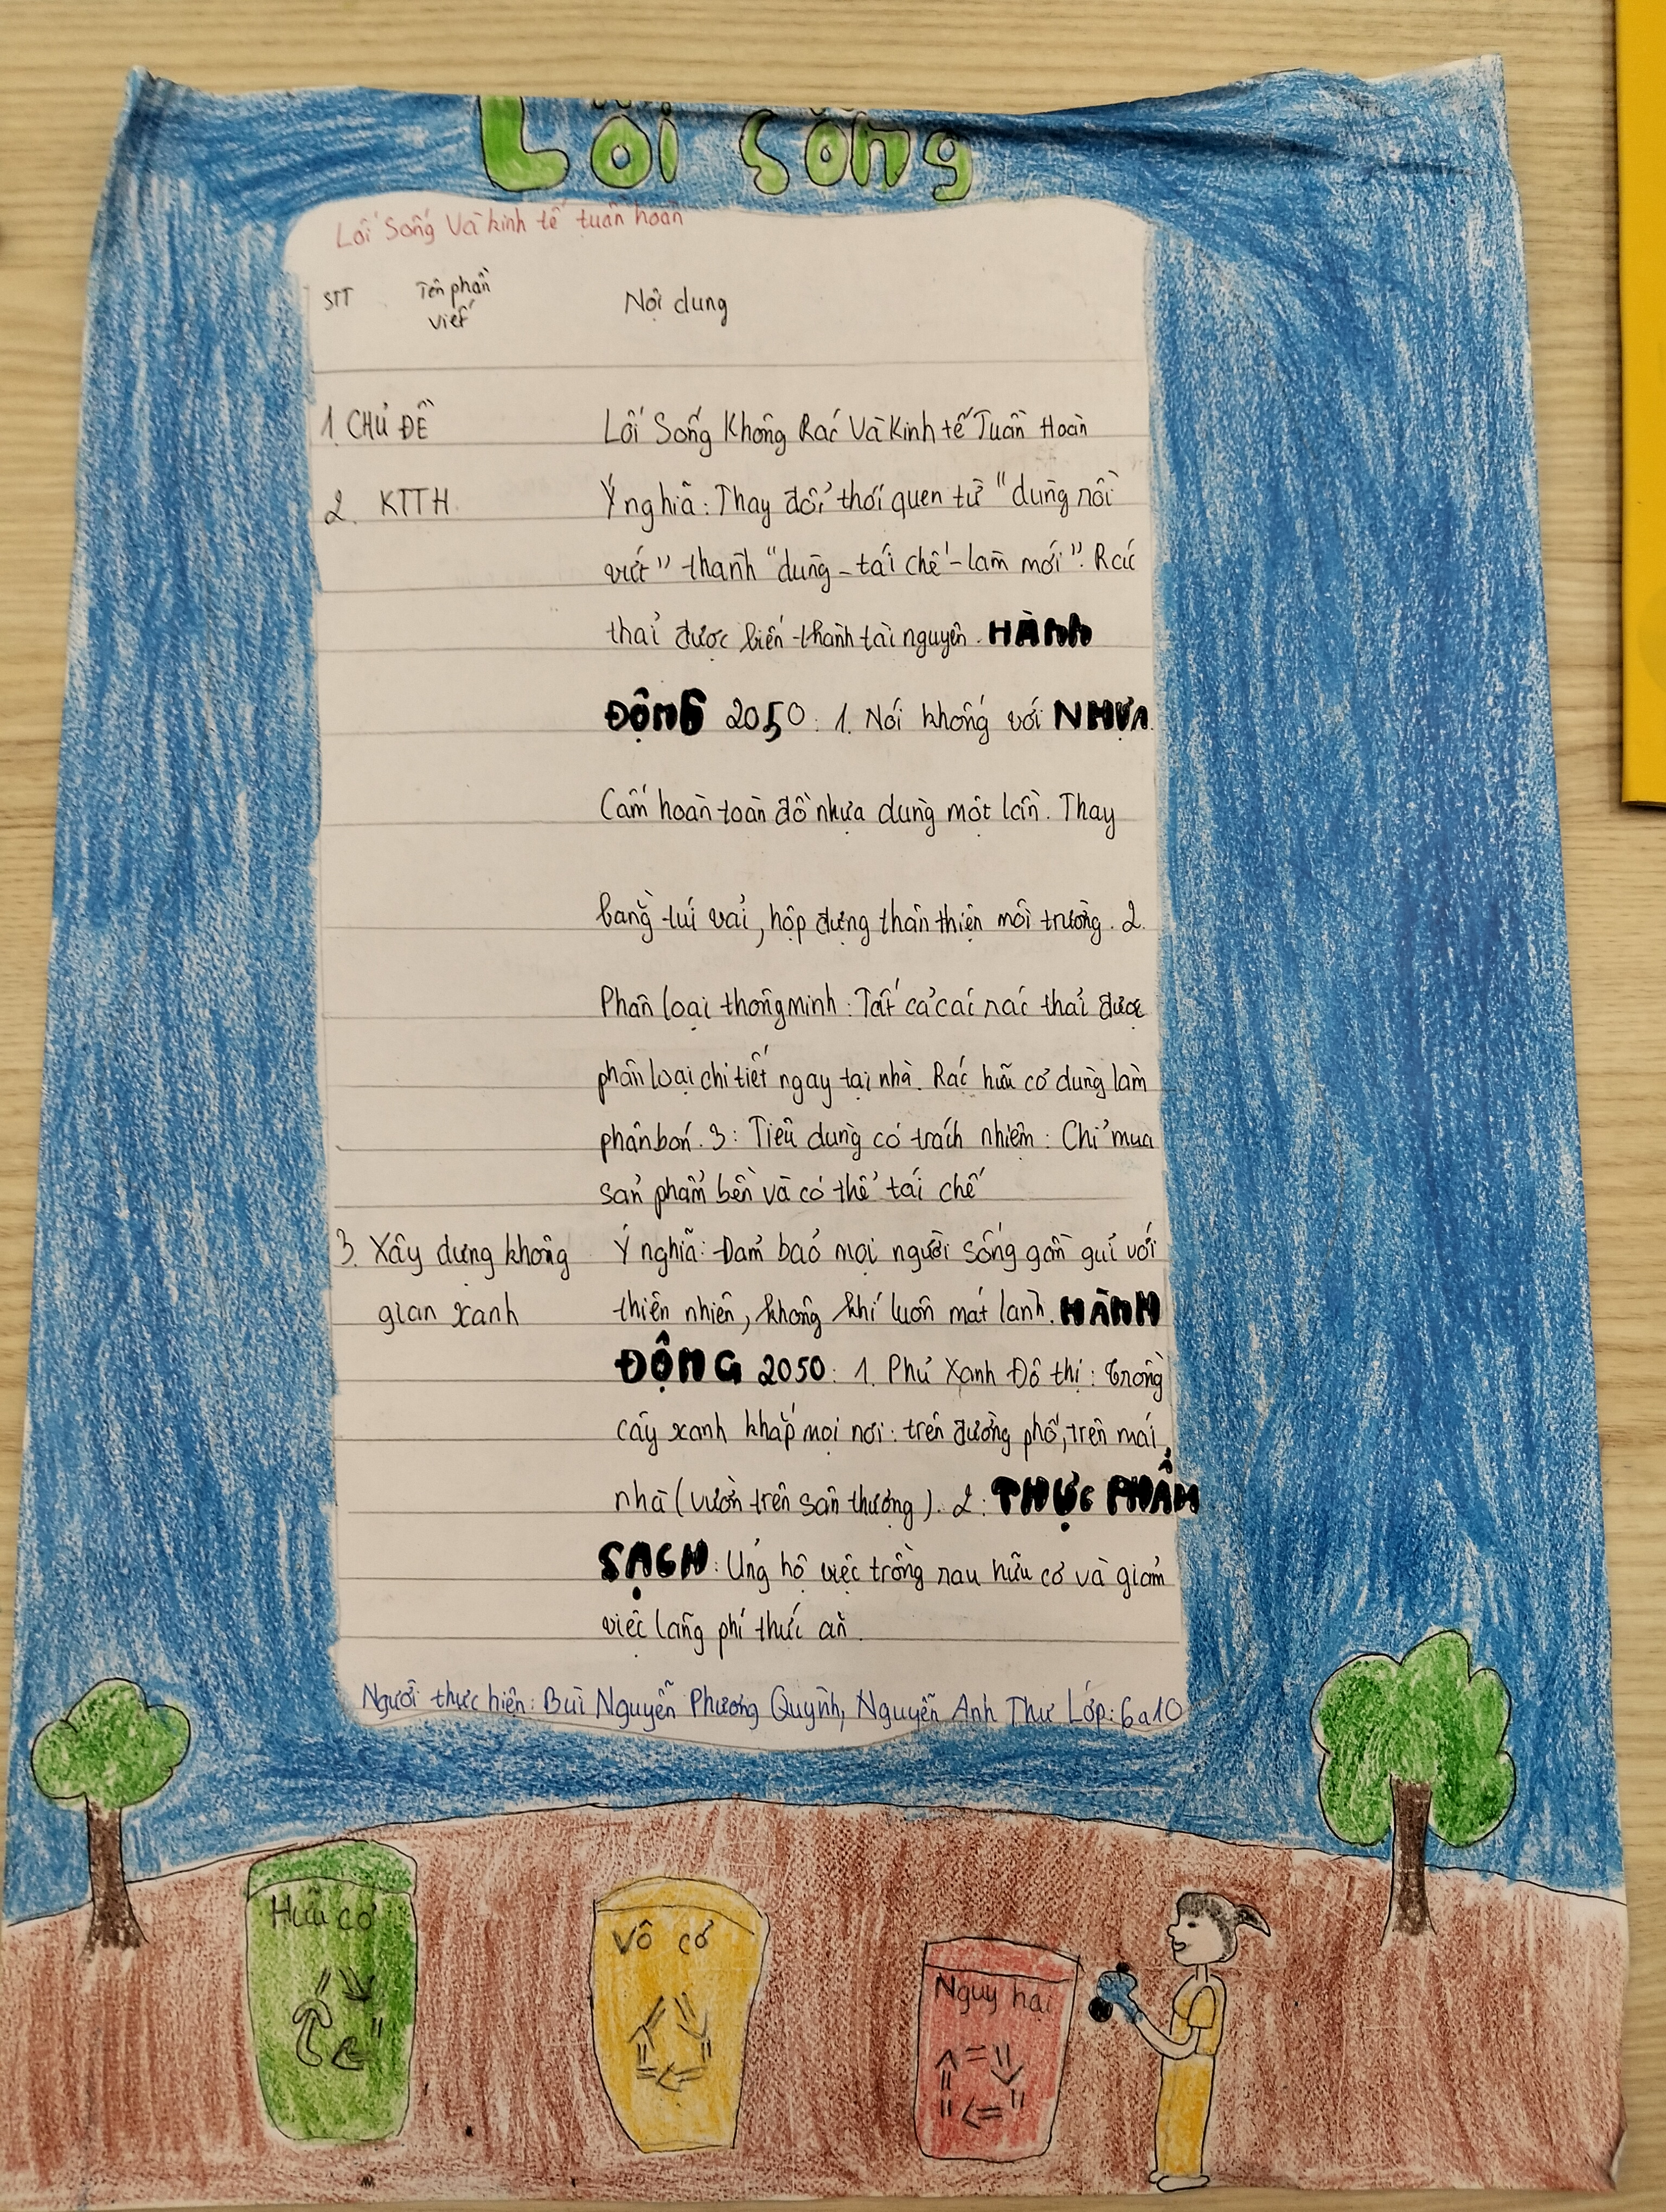 Lối sống
Lối Sống Và kinh tế tuần hoàn
STT Tên phần viết Nội dung
1. CHỦ ĐỀ Lối Sống Không Rác Và Kinh tế Tuần Hoàn
2. KTTH Ý nghĩa: Thay đổi thói quen từ "dùng rồi
vứt" thành "dùng - tái chế - làm mới". Rác
thải được biến thành tài nguyên. HÀNH
ĐỘNG 2050: 1. Nói không với NHỰA.
Cấm hoàn toàn đồ nhựa dùng một lần. Thay
bằng túi vải, hộp đựng thân thiện môi trường. 2.
Phân loại thông minh: Tất cả các rác thải được
phân loại chi tiết ngay tại nhà. Rác hữu cơ dùng làm
phân bón. 3: Tiêu dùng có trách nhiệm: Chỉ mua
sản phẩm bền và có thể tái chế
3. Xây dựng không Ý nghĩa: Đảm bảo mọi người sống gần gũi với
gian xanh thiên nhiên, không khí luôn mát lành. HÀNH
ĐỘNG 2050: 1. Phủ Xanh Đô thị: Trồng
cây xanh khắp mọi nơi: trên đường phố, trên mái
nhà (vườn trên sân thượng). 2: THỰC PHẨM
SẠCH: Ủng hộ việc trồng rau hữu cơ và giảm
việc lãng phí thức ăn.
Người thực hiện: Bùi Nguyễn Phương Quỳnh, Nguyễn Anh Thư Lớp: 6a10
Hữu cơ
Vô cơ
Nguy hại